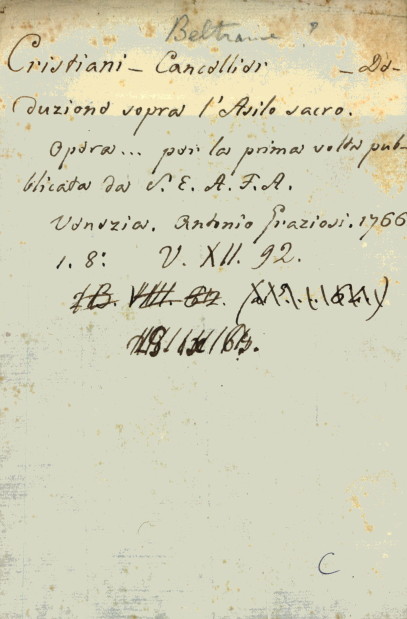 Beltrame ?
Cristiani - Cancellier - De-
duzione sopra l'Asilo sacro.
Opera... per la prima volta pub-
blicata da S. E. A. F. A.
Venezia. Antonio Graziosi. 1766
1. 8: V. XII. 92.
C